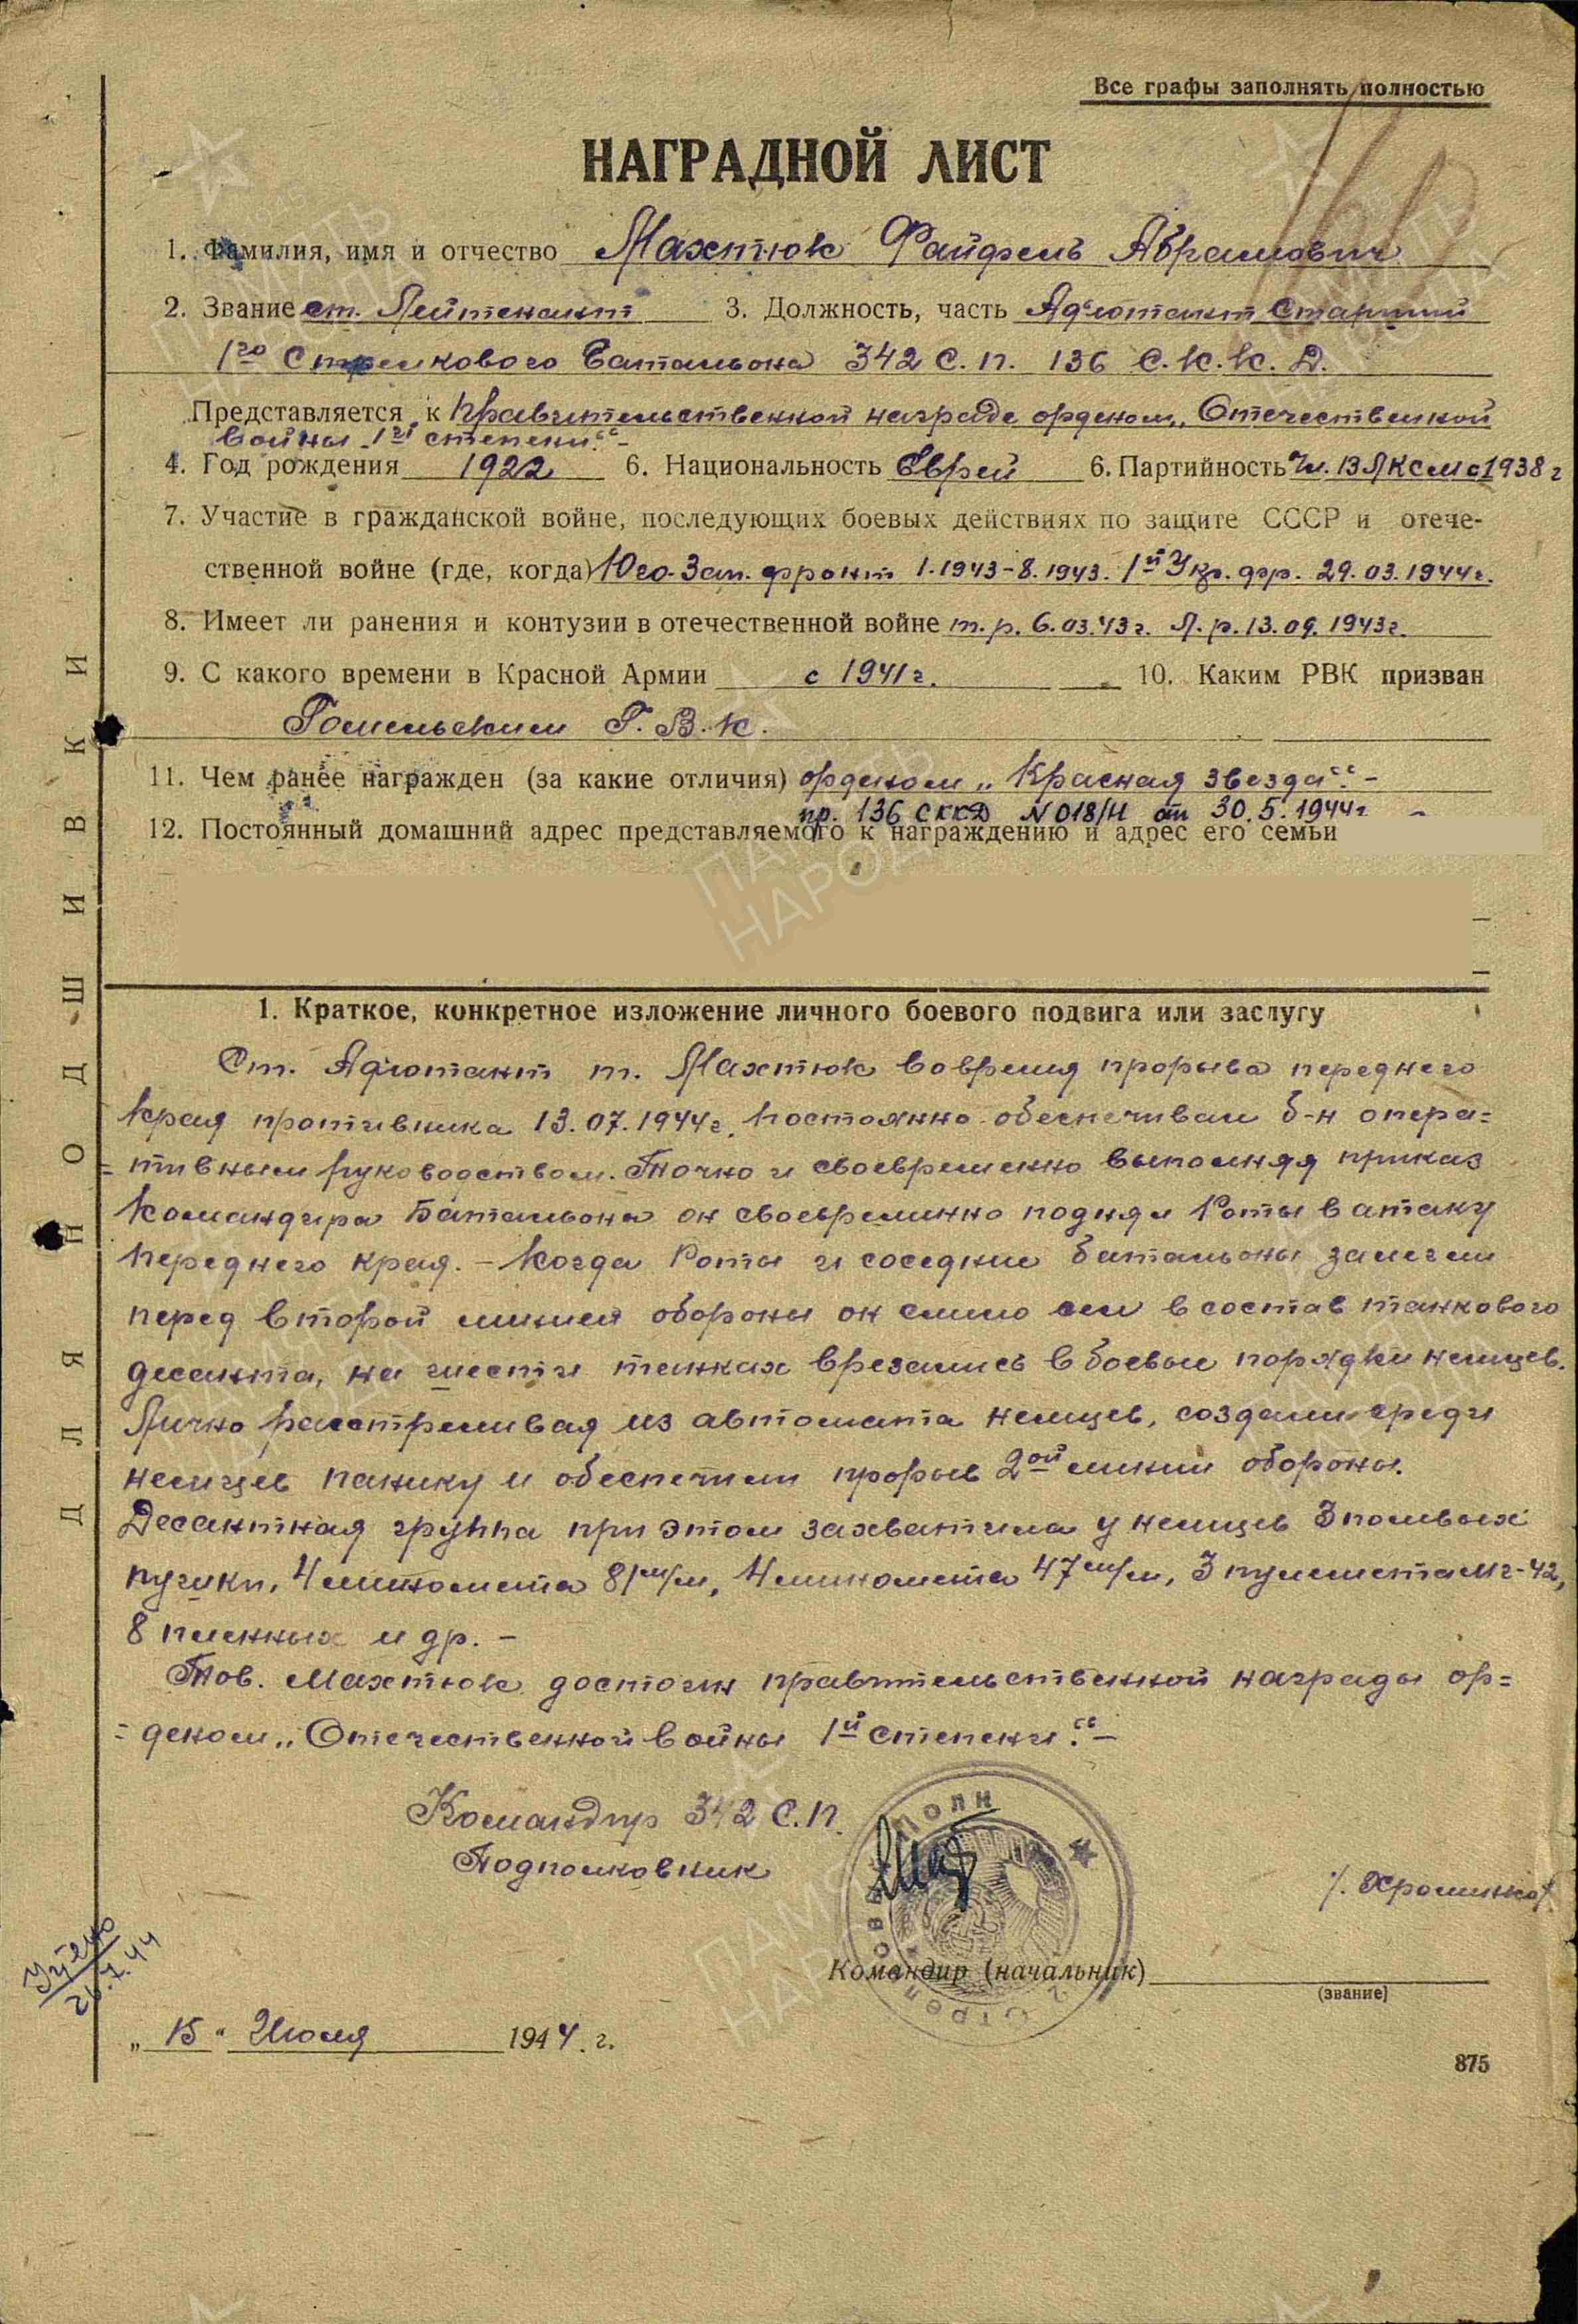 Все графы заполнять полностью
НАГРАДНОЙ ЛИСТ
1. Фамилия, имя и отчество Махтюк Файфель Абрамович
2. Звание ст. Лейтенант 3. Должность, часть Адъютант Старший
1го Стрелкового Батальона 342 С. П. 136 С. К. К. Д.
Представляется к правительственной награде орденом „Отечественной
войны 1ой степени“.-
4. Год рождения 1922 6. Национальность Еврей 6. Партийность Чл. ВЛКСМ с 1938 г
7. Участие в гражданской войне, последующих боевых действиях по защите СССР и отече-
ственной войне (где, когда) Юго-Зап. фронт 1.1943-8.1943. 1й Укр. фр. 29.03.1944г.
8. Имеет ли ранения и контузии в отечественной войне т. р. 6.03.43г. Л. р. 13.09.1943г.
9. С какого времени в Красной Армии с 1941г. 10. Каким РВК призван
Гомельским Г. В. К.
11. Чем ранее награжден (за какие отличия) орденом „Красная звезда“.-
пр. 136 СККД N 018/Н от 30.5.1944г
12. Постоянный домашний адрес представляемого к награждению и адрес его семьи
1. Краткое, конкретное изложение личного боевого подвига или заслугу
Ст. Адъютант т. Махтюк во время прорыва переднего
края противника 13.07.1944г. постоянно обеспечивал б-н опера=
=тивным руководством. Точно и своевременно выполняя приказ
Командира Батальона он своевременно поднял Роты в атаку
переднего края. - Когда Роты и соседние батальоны залегли
перед второй линией обороны он смело сел в состав танкового
десанта, на шести танках врезались в боевые порядки немцев.
Лично расстреливая из автомата немцев, создали среди
немцев панику и обеспечили прорыв 2ой линии обороны.
Десантная группа при этом захватила у немцев 3 полевых
пушки, 4 миномета 81 м/м, 4 миномета 47 м/м, 3 пулемета МГ-42,
8 пленных и др. -
Тов. Махтюк достоин правительственной награды ор=
=деном „Отечественной войны 1й степени“.-
Командир 342 С. П.
Подполковник
/. Хроминко/.
Командир (начальник)
(звание)
Учтено
21.7.44
„15“ Июля 1944. г.
875
ДЛЯ ПОДШИВКИ
СТРЕЛКОВЫЙ ПОЛК
ПАМЯТЬ НАРОДА